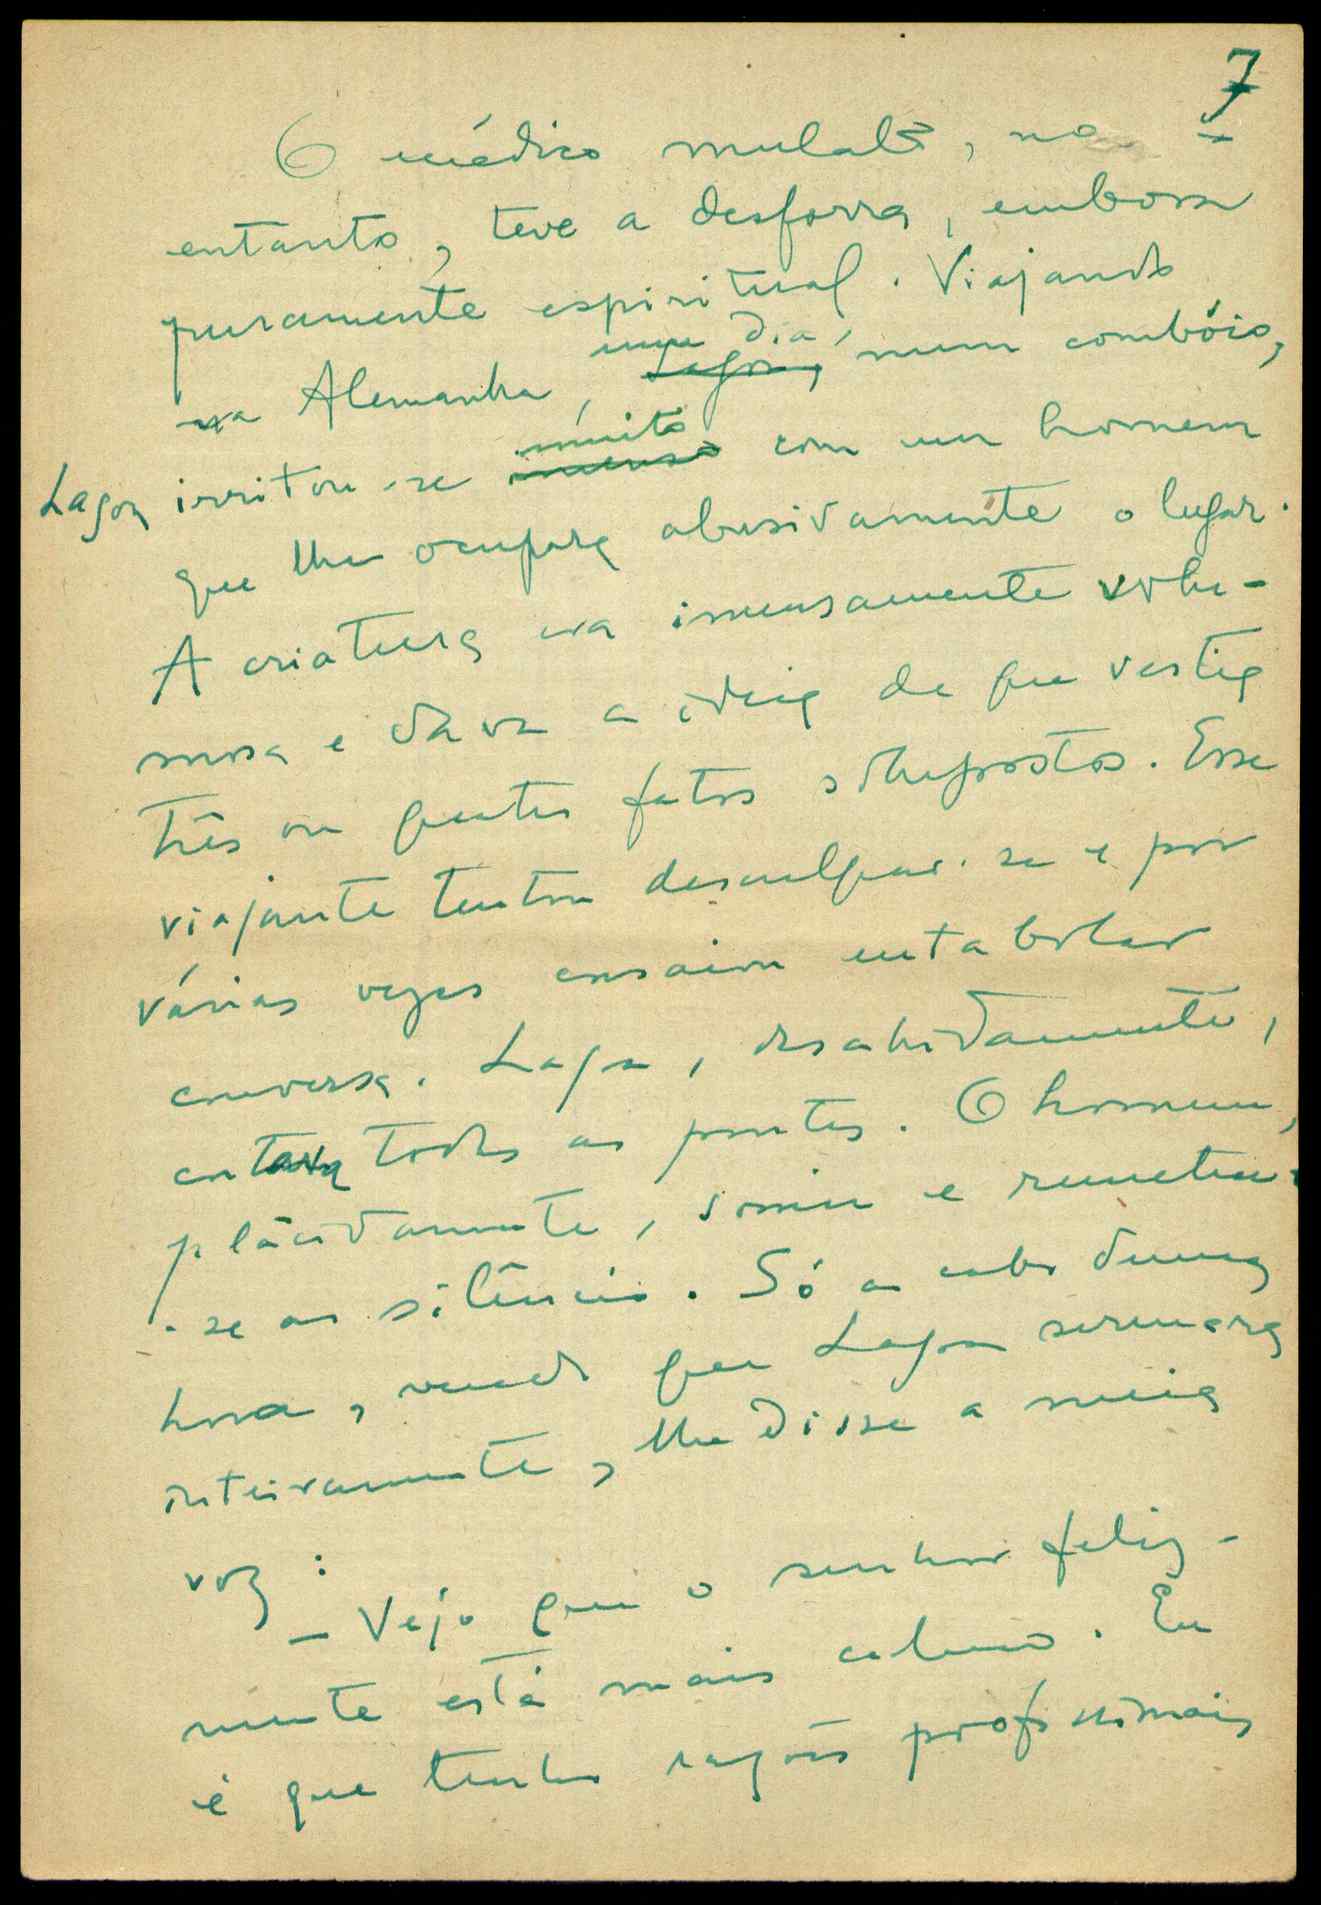 7
O médico mulato, no
entanto, teve a desforra, embora
puramente espiritual. Viajando
um dia,
na Alemanha, Lagoa, num combóio,
muito
Lagoa irritou-se imenso com um homem
que lhe ocupara abusivamente o lugar.
A criatura era imensamente volu-
mosa e dava a ideia de que vestia
três ou quatro fatos sobrepostos. Esse
viajante tentou desculpar-se e por
várias vezes ensaiou entabolar
conversa. Lagoa, desabridamente,
cortava todas as pontes. O homem,
plàcidamente, sorriu e remeteu-
-se ao silêncio. Só ao cabo duma
hora, vendo que Lagoa serenara
inteiramente, lhe disse a meia
voz:
— Vejo que o senhor feliz-
mente está mais calmo. Eu
é que tenho razões profissionais